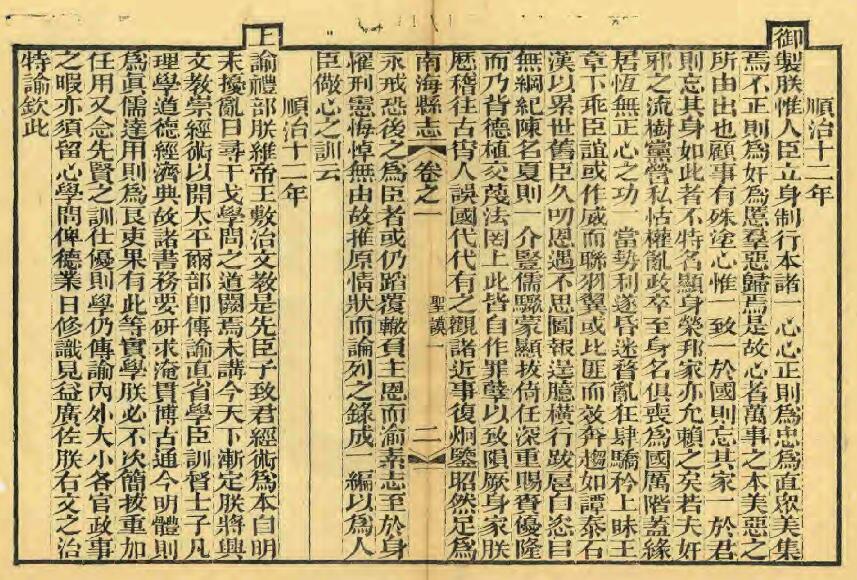 順治十二年
御製朕惟人臣立身制行本諸一心心正則爲忠爲直眾美集
焉不正則爲奸爲慝羣惡歸焉是故心者萬事之本美惡之
所由出也顧事有殊途心惟一致一於國則忘其家一於君
則忘其身如此者不特名顯身榮邦家亦允賴之矣若夫奸
邪之流樹黨營私怙權亂政卒至身名俱喪爲國厲階蓋緣
居恆無正心之功一當勢利遂昏迷瞀亂狂肆驕矜上昧王
章下乖臣誼或作威而聯羽翼或比匪而效奔趨如譚泰石
漢以累世舊臣久叨恩遇不思圖報逞臆橫行跋扈自恣目
無綱紀陳名夏則一介豎儒驟蒙顯拔倚任深重賜賚優隆
而乃背德植交蔑法罔上此皆自作罪孽以致隕厥身家朕
歷稽往古脅人誤國代代有之觀諸近事復炯鑒昭然足爲
南海縣志 卷之一 聖謨一 二
永戒恐後之爲臣者或仍蹈覆轍負主恩而渝素志至於身
罹刑憲悔悼無由故推原情狀而論列之錄成一編以爲人
臣儆心之訓云
順治十二年
上諭禮部朕維帝王敷治文教是先臣子致君經術爲本自明
末擾亂日尋干戈學問之道闕焉未講今天下漸定朕將興
文教崇經術以開太平爾部卽傳諭直省學臣訓督士子凡
理學道德經濟典故諸書務要研求淹貫博古通今明體則
爲眞儒達用則爲良吏果有此等實學朕必不次簡拔重加
任用又念先賢之訓仕優則學仍傳諭內外大小各官政事
之暇亦須留心學問俾德業日修識見益廣佐朕右文之治
特諭欽此